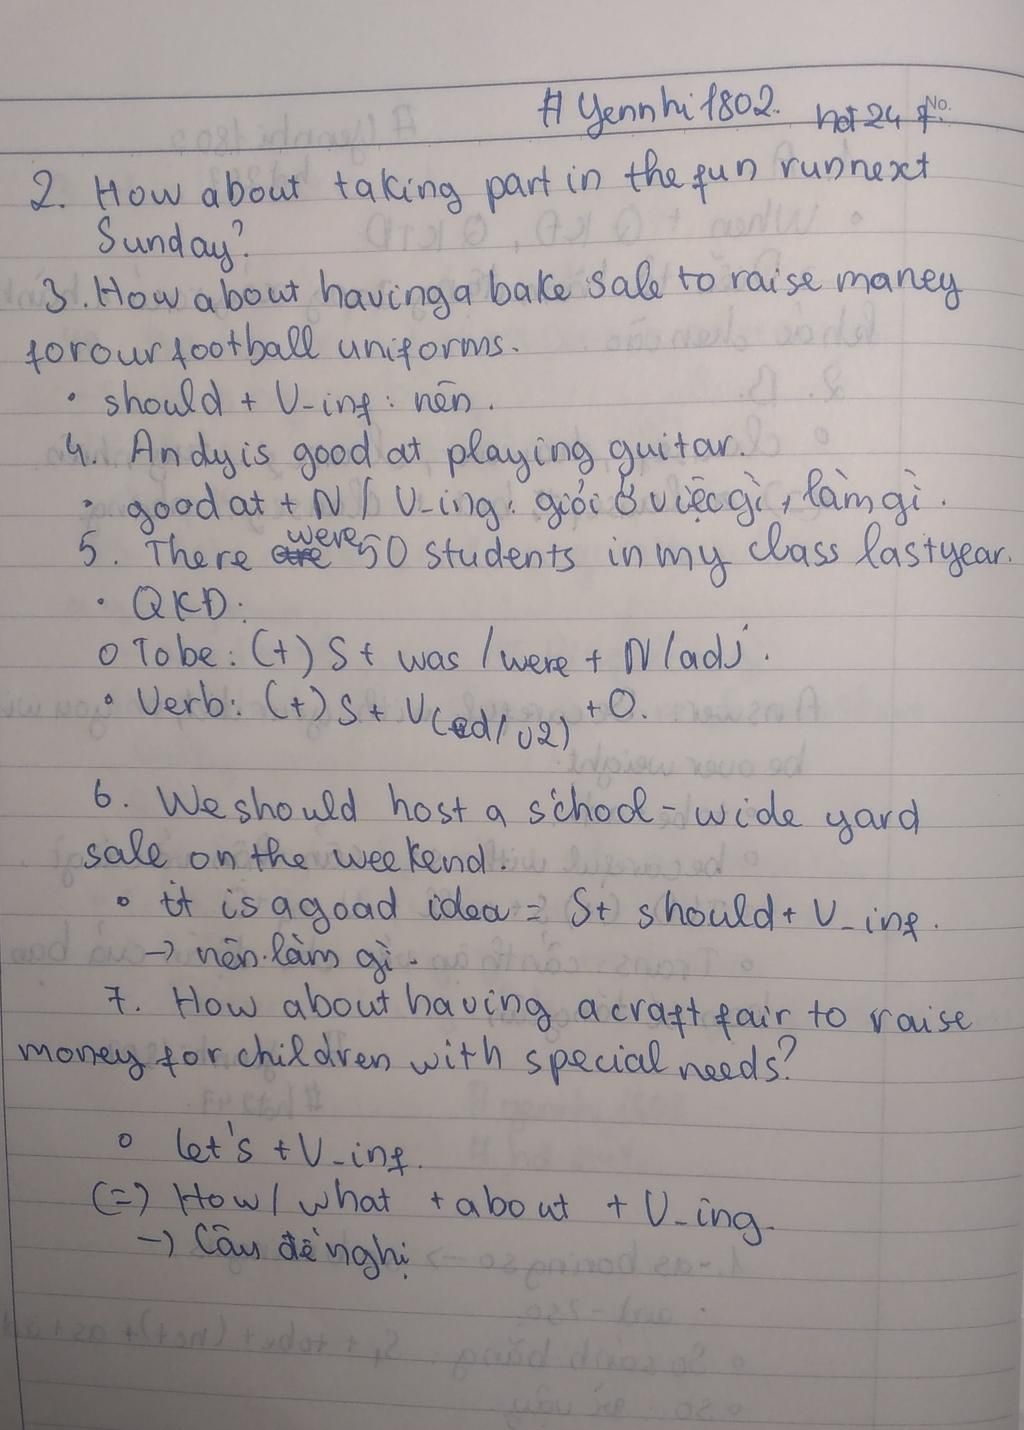 # Yennhi1802. hot 24 7.
No.
2. How about taking part in the fun run next
Sunday?
3. How about having a bake sale to raise money
for our football uniforms.
• should + V-inf : nên.
4. Andy is good at playing guitar.
• good at + N / V-ing : giỏi ở việc gì, làm gì.
5. There are were 50 students in my class last year.
• QKĐ:
o To be : (+) S + was / were + N / adj.
• Verb : (+) S + V(ed / v2) + O.
6. We should host a school-wide yard
sale on the weekend.
• it is a good idea = S + should + V-inf.
→ nên làm gì.
7. How about having a craft fair to raise
money for children with special needs?
o let's + V-inf.
(=) How / what + about + V-ing.
→ Câu đề nghị